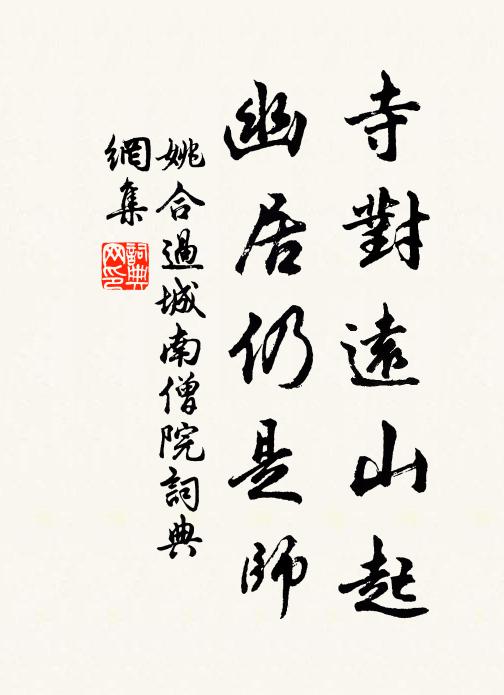 寺對遠山起
幽居仍是師
姚合過城南僧院詞典
網集
詞典
网印